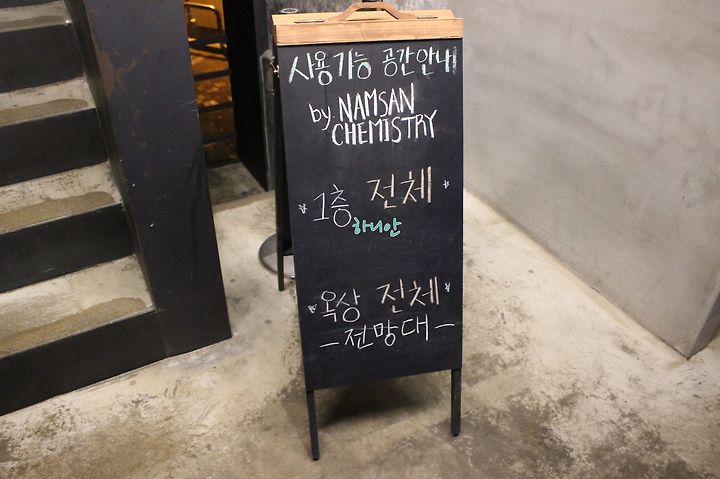 사용가능 공간안내
by. NAMSAN
CHEMISTRY
1층 전체
하니안
옥상 전체
-전망대-